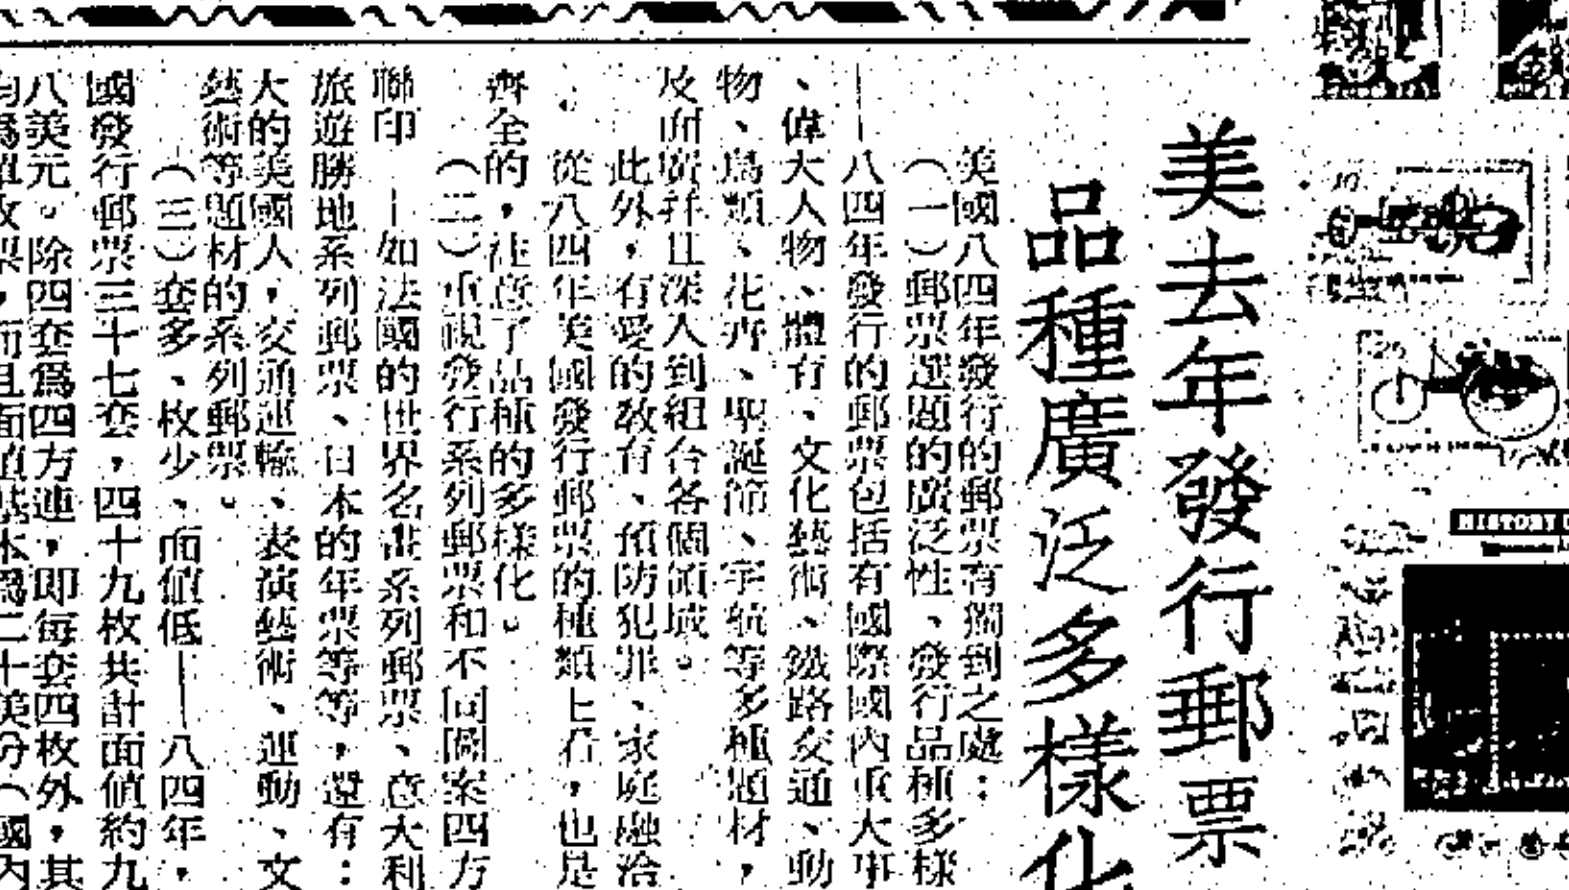 美去年發行郵票
品種廣泛多樣化
美國八四年發行的郵票有獨到之處：
（一）郵票選題的廣泛性、發行品種多樣
—八四年發行的郵票包括有國際國內重大事
、偉大人物、體育、文化藝術、鐵路交通、動
物、鳥類、花卉、聖誕節、宇航等多種題材，
及面廣并且深入到組合各個領域。
此外，有愛的教育、預防犯罪、家庭融洽
。
從八四年美國發行郵票的種類上看，也是
齊全的，注意了品種的多樣化。
（二）重視發行系列郵票和不同圖案四方
聯印—如法國的世界名畫系列郵票、意大利
旅遊勝地系列郵票、日本的年票等等，還有：
大的美國人，交通運輸、表演藝術、運動、文
藝術等題材的系列郵票。
（三）套多、枚少、面值低—八四年，
國發行郵票三十七套，四十九枚共計面值約九
八美元。除四套爲四方連，即每套四枚外，其
均爲單枚票，而且面值基本爲二十美分（國內
HISTORY